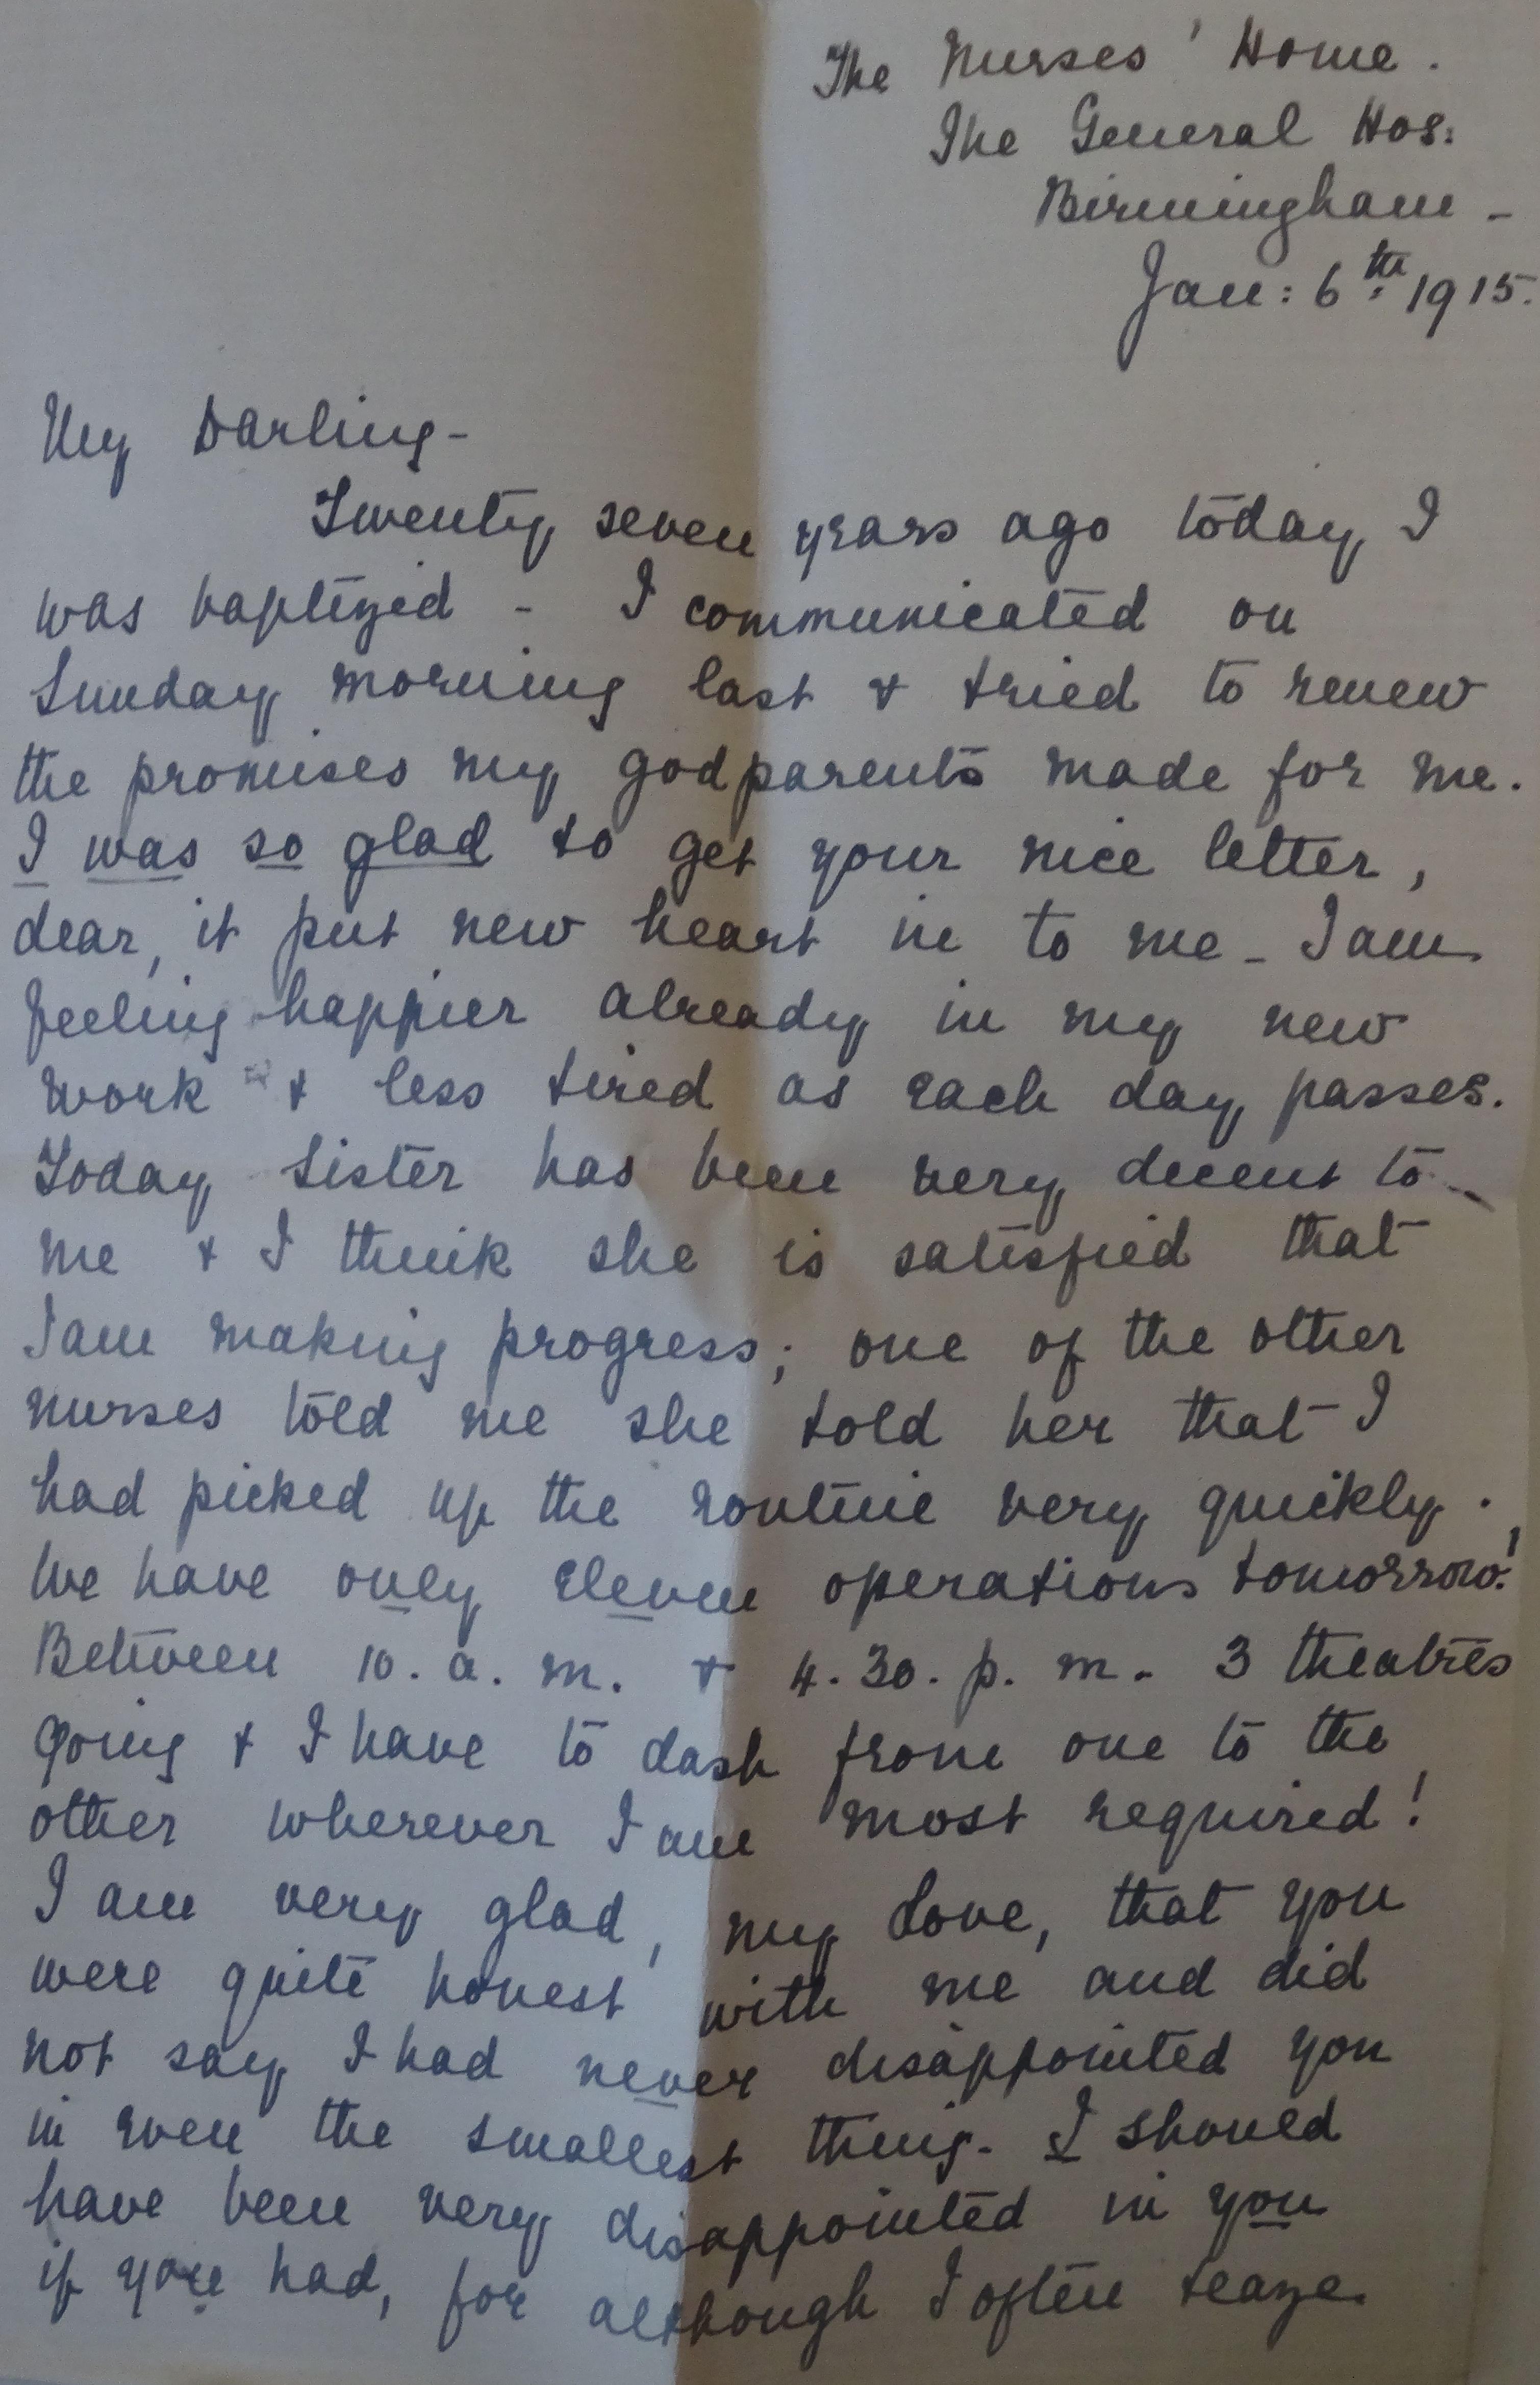 The Nurses' Home.
The General Hos:
Birmingham -
Jan: 6th 1915.
My Darling -
Twenty seven years ago today I
was baptized - I communicated on
Sunday morning last & tried to renew
the promises my godparents made for me.
I was so glad to get your nice letter,
dear, it put new heart in to me - I am
feeling happier already in my new
work & less tired as each day passes.
Today Sister has been very decent to
me & I think she is satisfied that
I am making progress; one of the other
nurses told me she told her that I
had picked up the routine very quickly.
We have only eleven operations tomorrow!
Between 10. a. m. & 4.30. p. m. 3 theatres
going & I have to dash from one to the
other wherever I am most required!
I am very glad, my Love, that you
were quite honest with me and did
not say I had never disappointed you
in even the smallest thing. I should
have been very disappointed in you
if you had, for although I often teaze